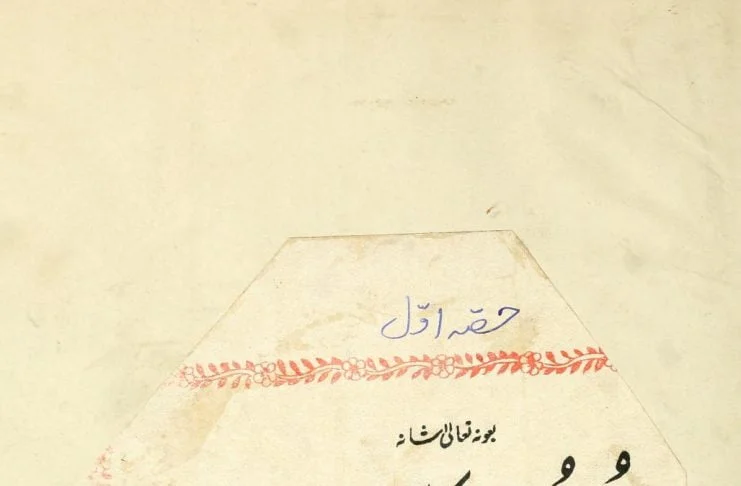 حصہ اول
بعونہ تعالیٰ شانہ